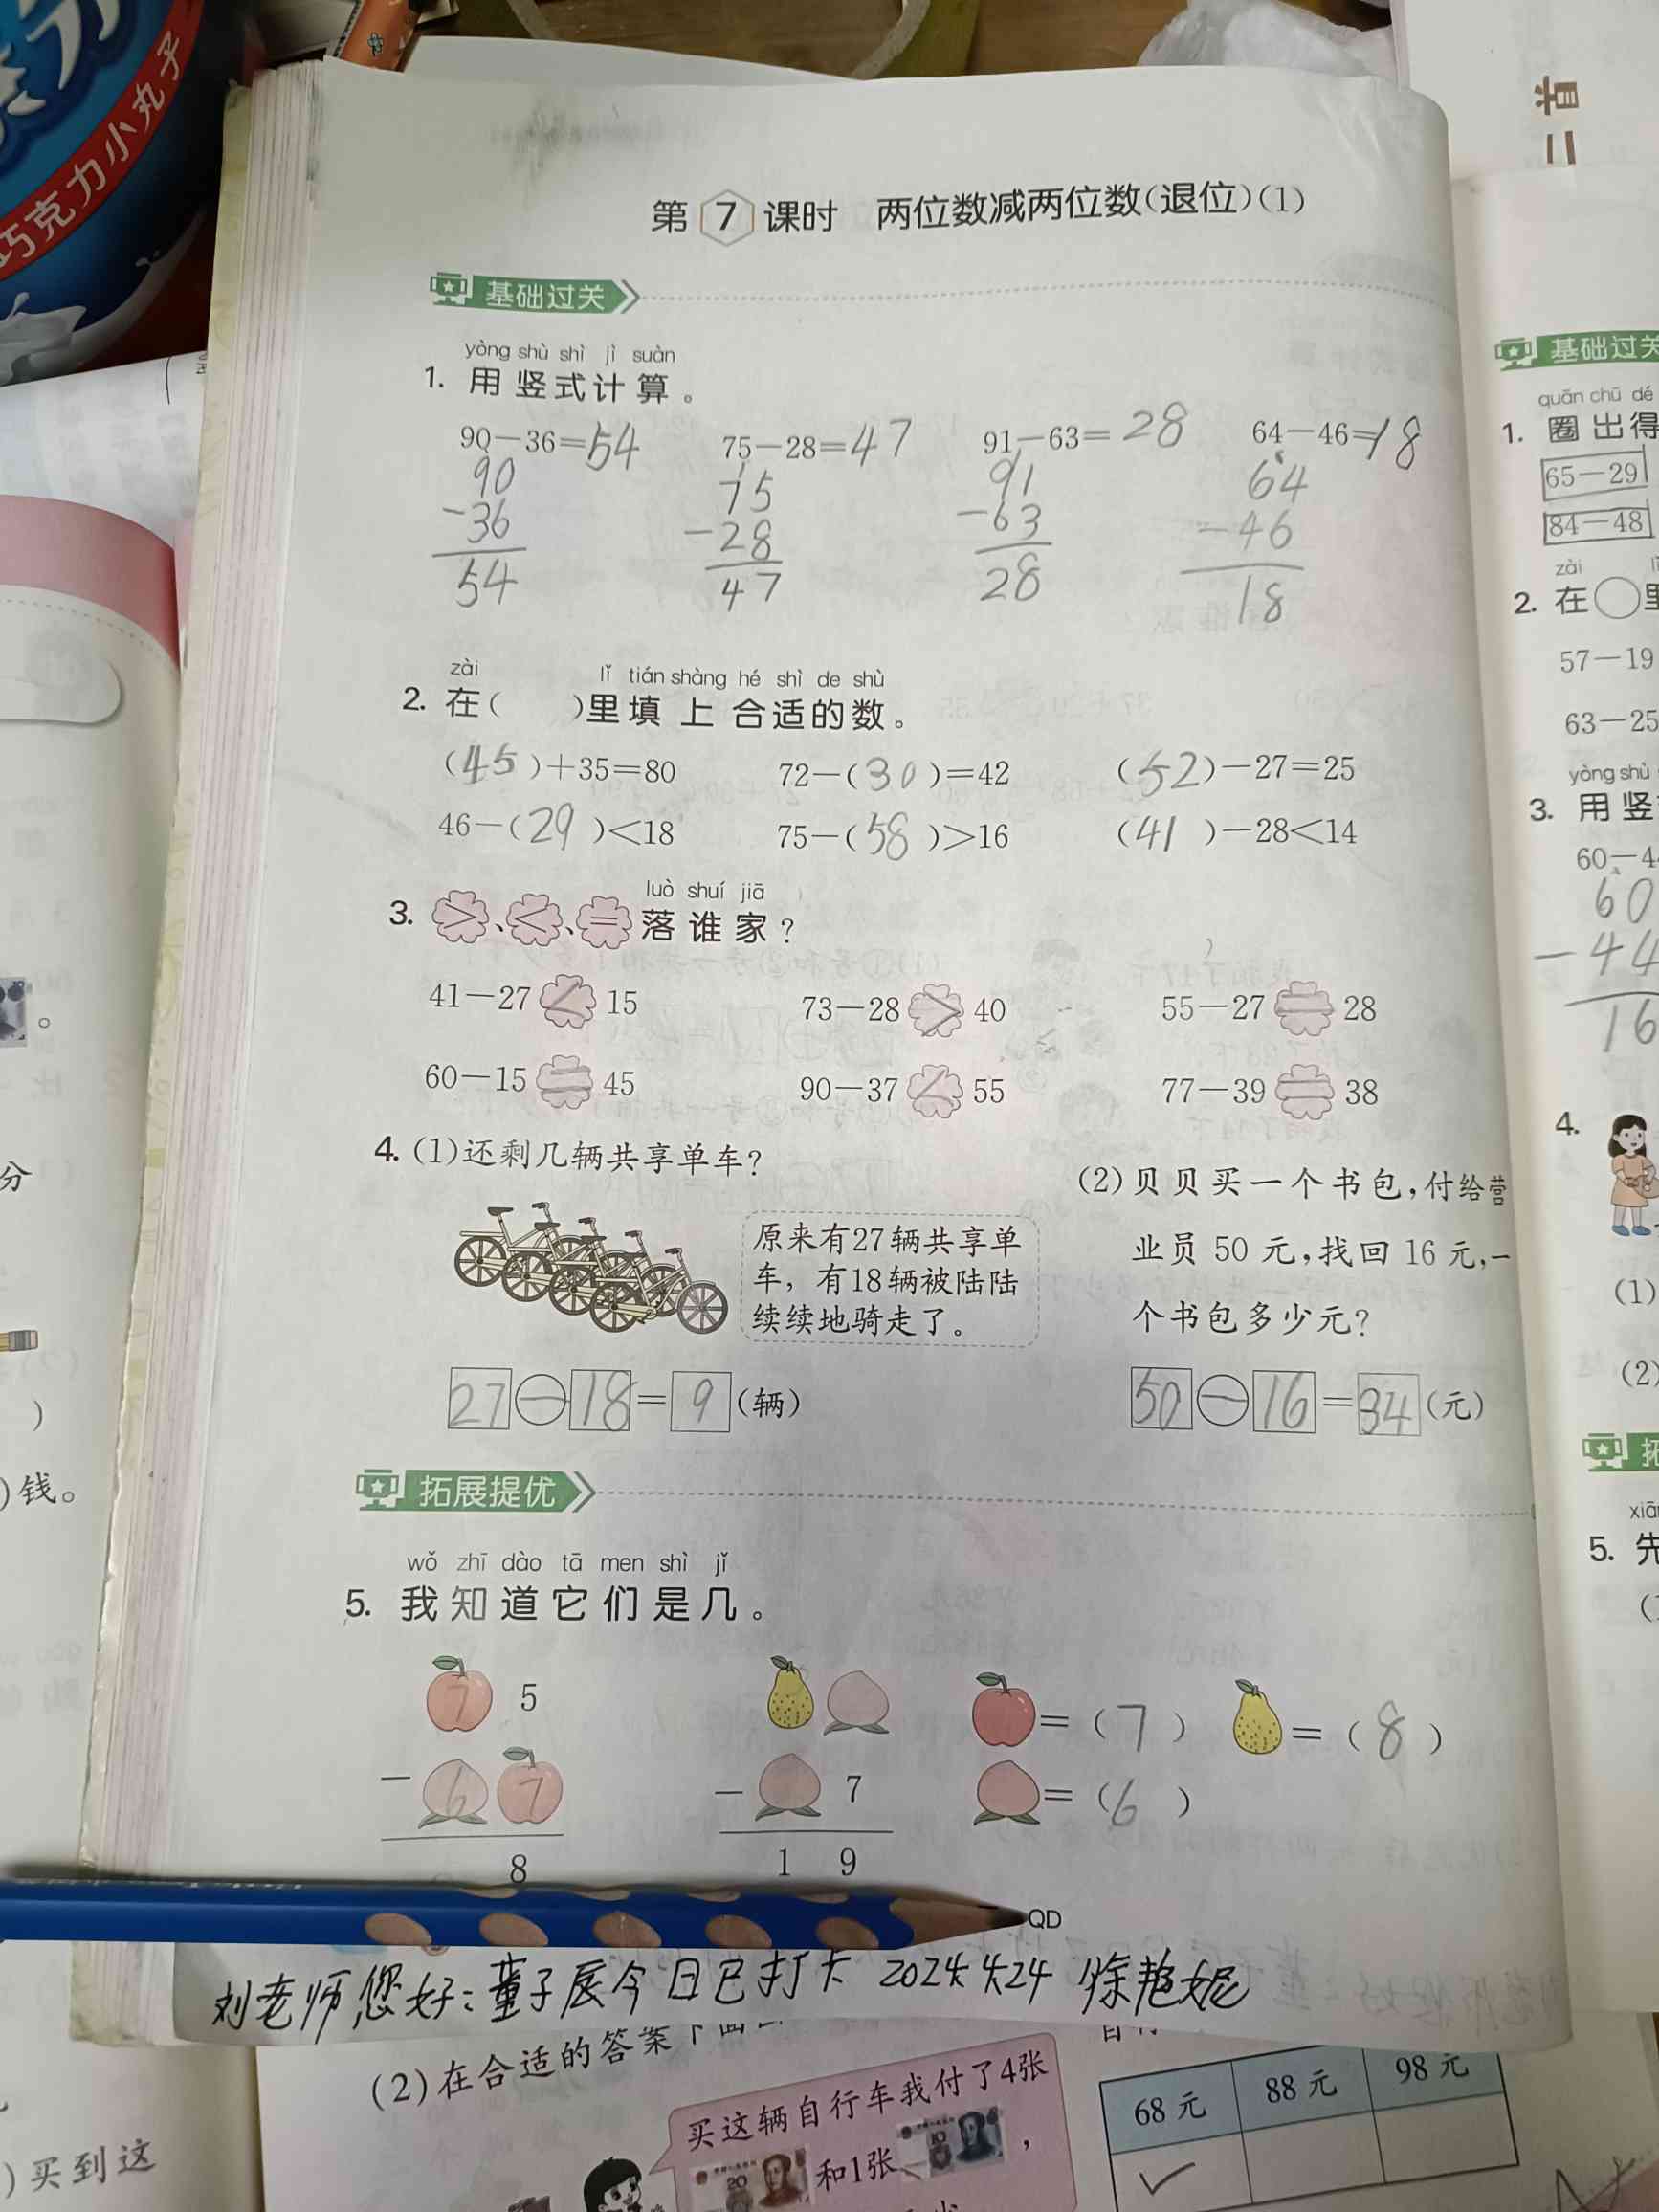 巧克力小丸子
第7课时 两位数减两位数(退位)(1)
基础过关
yòng shù shì jì suàn
1. 用竖式计算。
90－36=54 75－28=47 91－63=28 64－46=18
90 75 91 64
-36 -28 -63 -46
54 47 28 18
zài lǐ tián shàng hé shì de shù
2. 在( )里填上合适的数。
(45)+35=80 72－(30)=42 (52)－27=25
46－(29)<18 75－(58)>16 (41)－28<14
luò shuí jiā
3. >、<、=落谁家?
41－27<15 73－28>40 55－27=28
60－15=45 90－37<55 77－39=38
4. (1)还剩几辆共享单车?
原来有27辆共享单
车，有18辆被陆陆
续续地骑走了。
27－18=9(辆)
(2)贝贝买一个书包,付给营
业员50元,找回16元,一
个书包多少元?
50－16=34(元)
拓展提优
wǒ zhī dào tā men shì jǐ
5. 我知道它们是几。
7 5
－ 6 7
8
－ 7
1 9
=(7) =(8)
=(6)
QD
刘老师您好：董子辰今日已打卡 2024.4.24 徐艳妮
(2)在合适的答案下面
买这辆自行车我付了4张
和1张
68元 88元 98元
✓
基础过关
quān chū dé
1. 圈出得
65－29
84－48
zài
2. 在○里
57－19
63－25
yòng shù
3. 用竖
60
-44
16
4.
(1)
(2)
5. 先
分
)
)钱。
)买到这